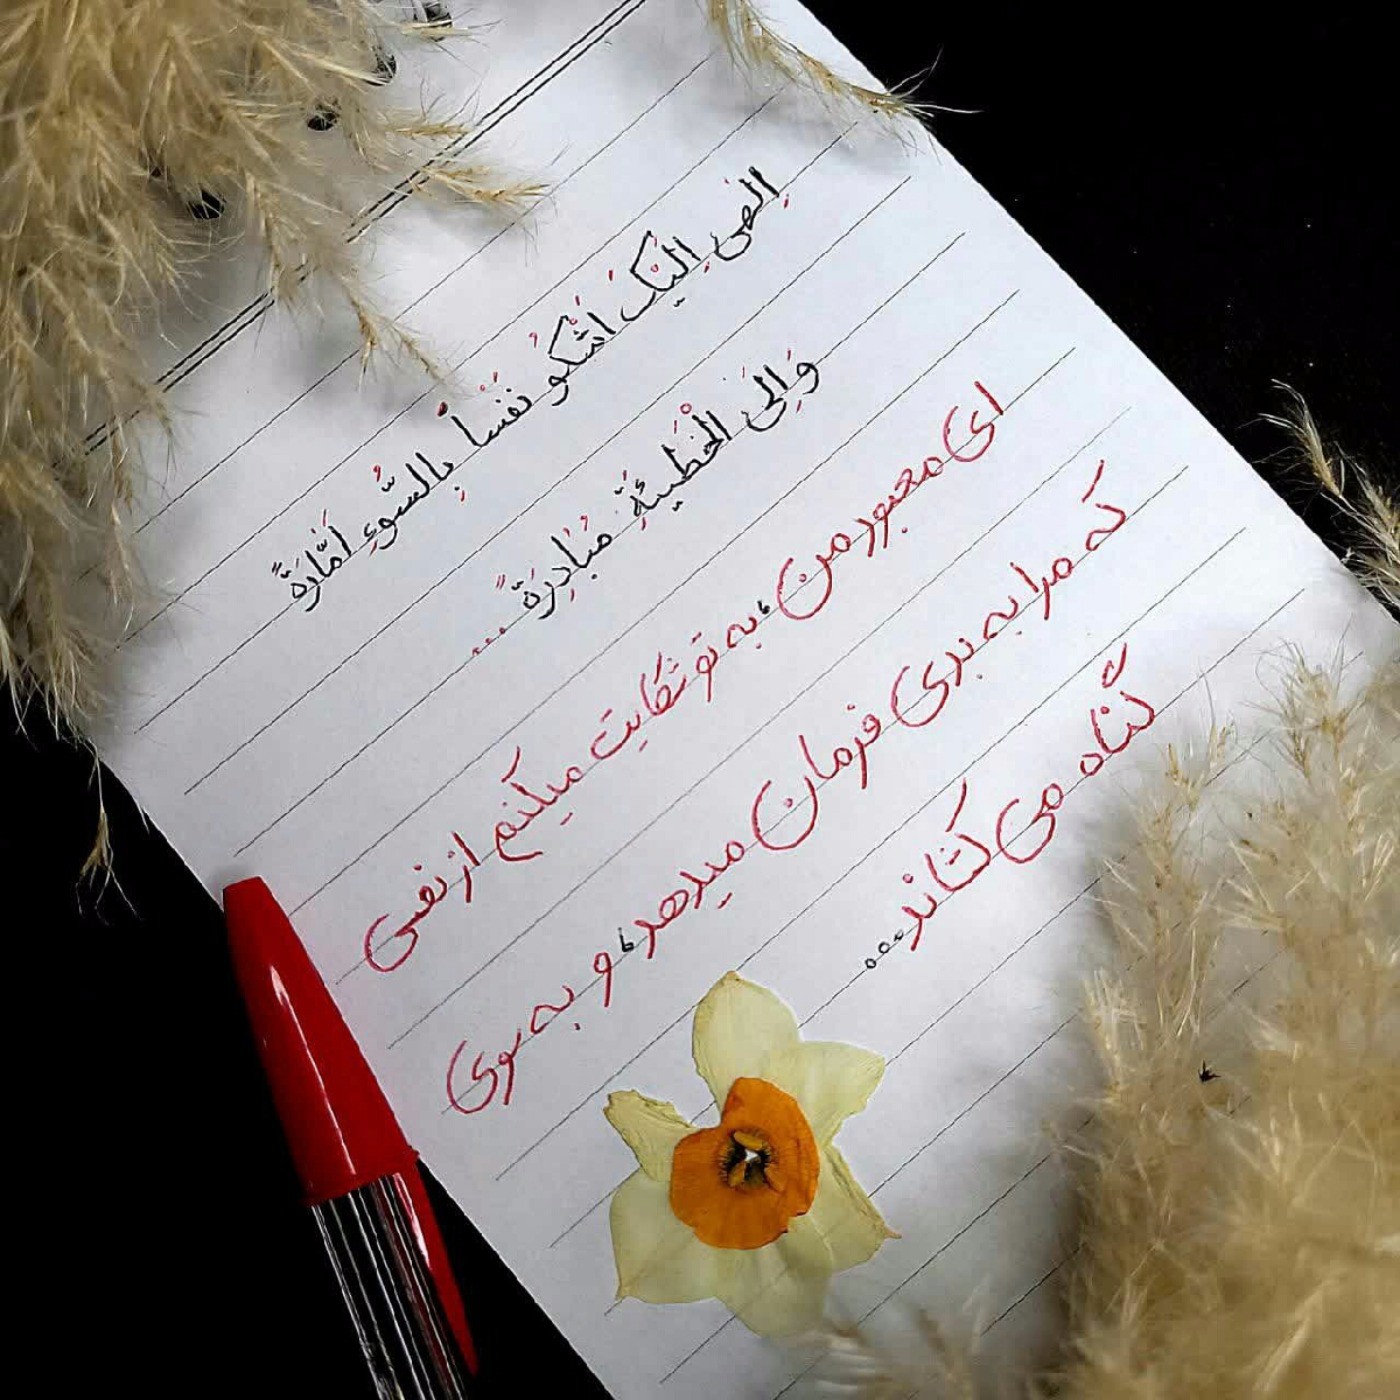 اِلهی اِلَیْکَ اَشْکُو نَفْساً بِالسُّوءِ اَمّارَةً
وَ اِلَی الْخَطیئَةِ مُبادِرَةً ...
ای معبود من، به تو شکایت میکنم از نفسی
که مرا به بدی فرمان میدهد، و به سوی
گناه می کشاند...